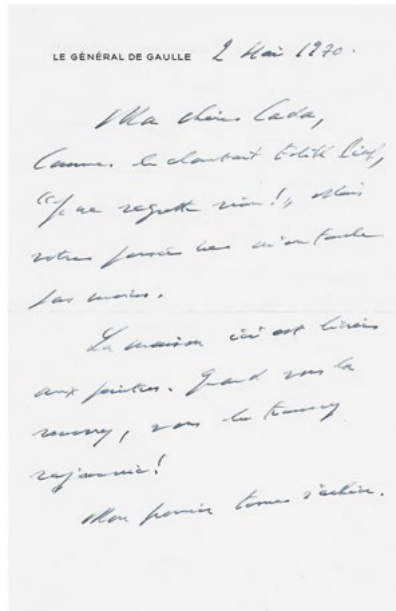 LE GÉNÉRAL DE GAULLE 2 Mai 1970.
Ma chère Cada,
Comme le chantait Edith Piaf,
"Je ne regrette rien!" Mais
votre pensée ne m'en touche
pas moins.
La maison ici est livrée
aux peintres. Quand vous la
reverrez, vous la trouverez
rajeunie!
Mon premier tome s'achève.